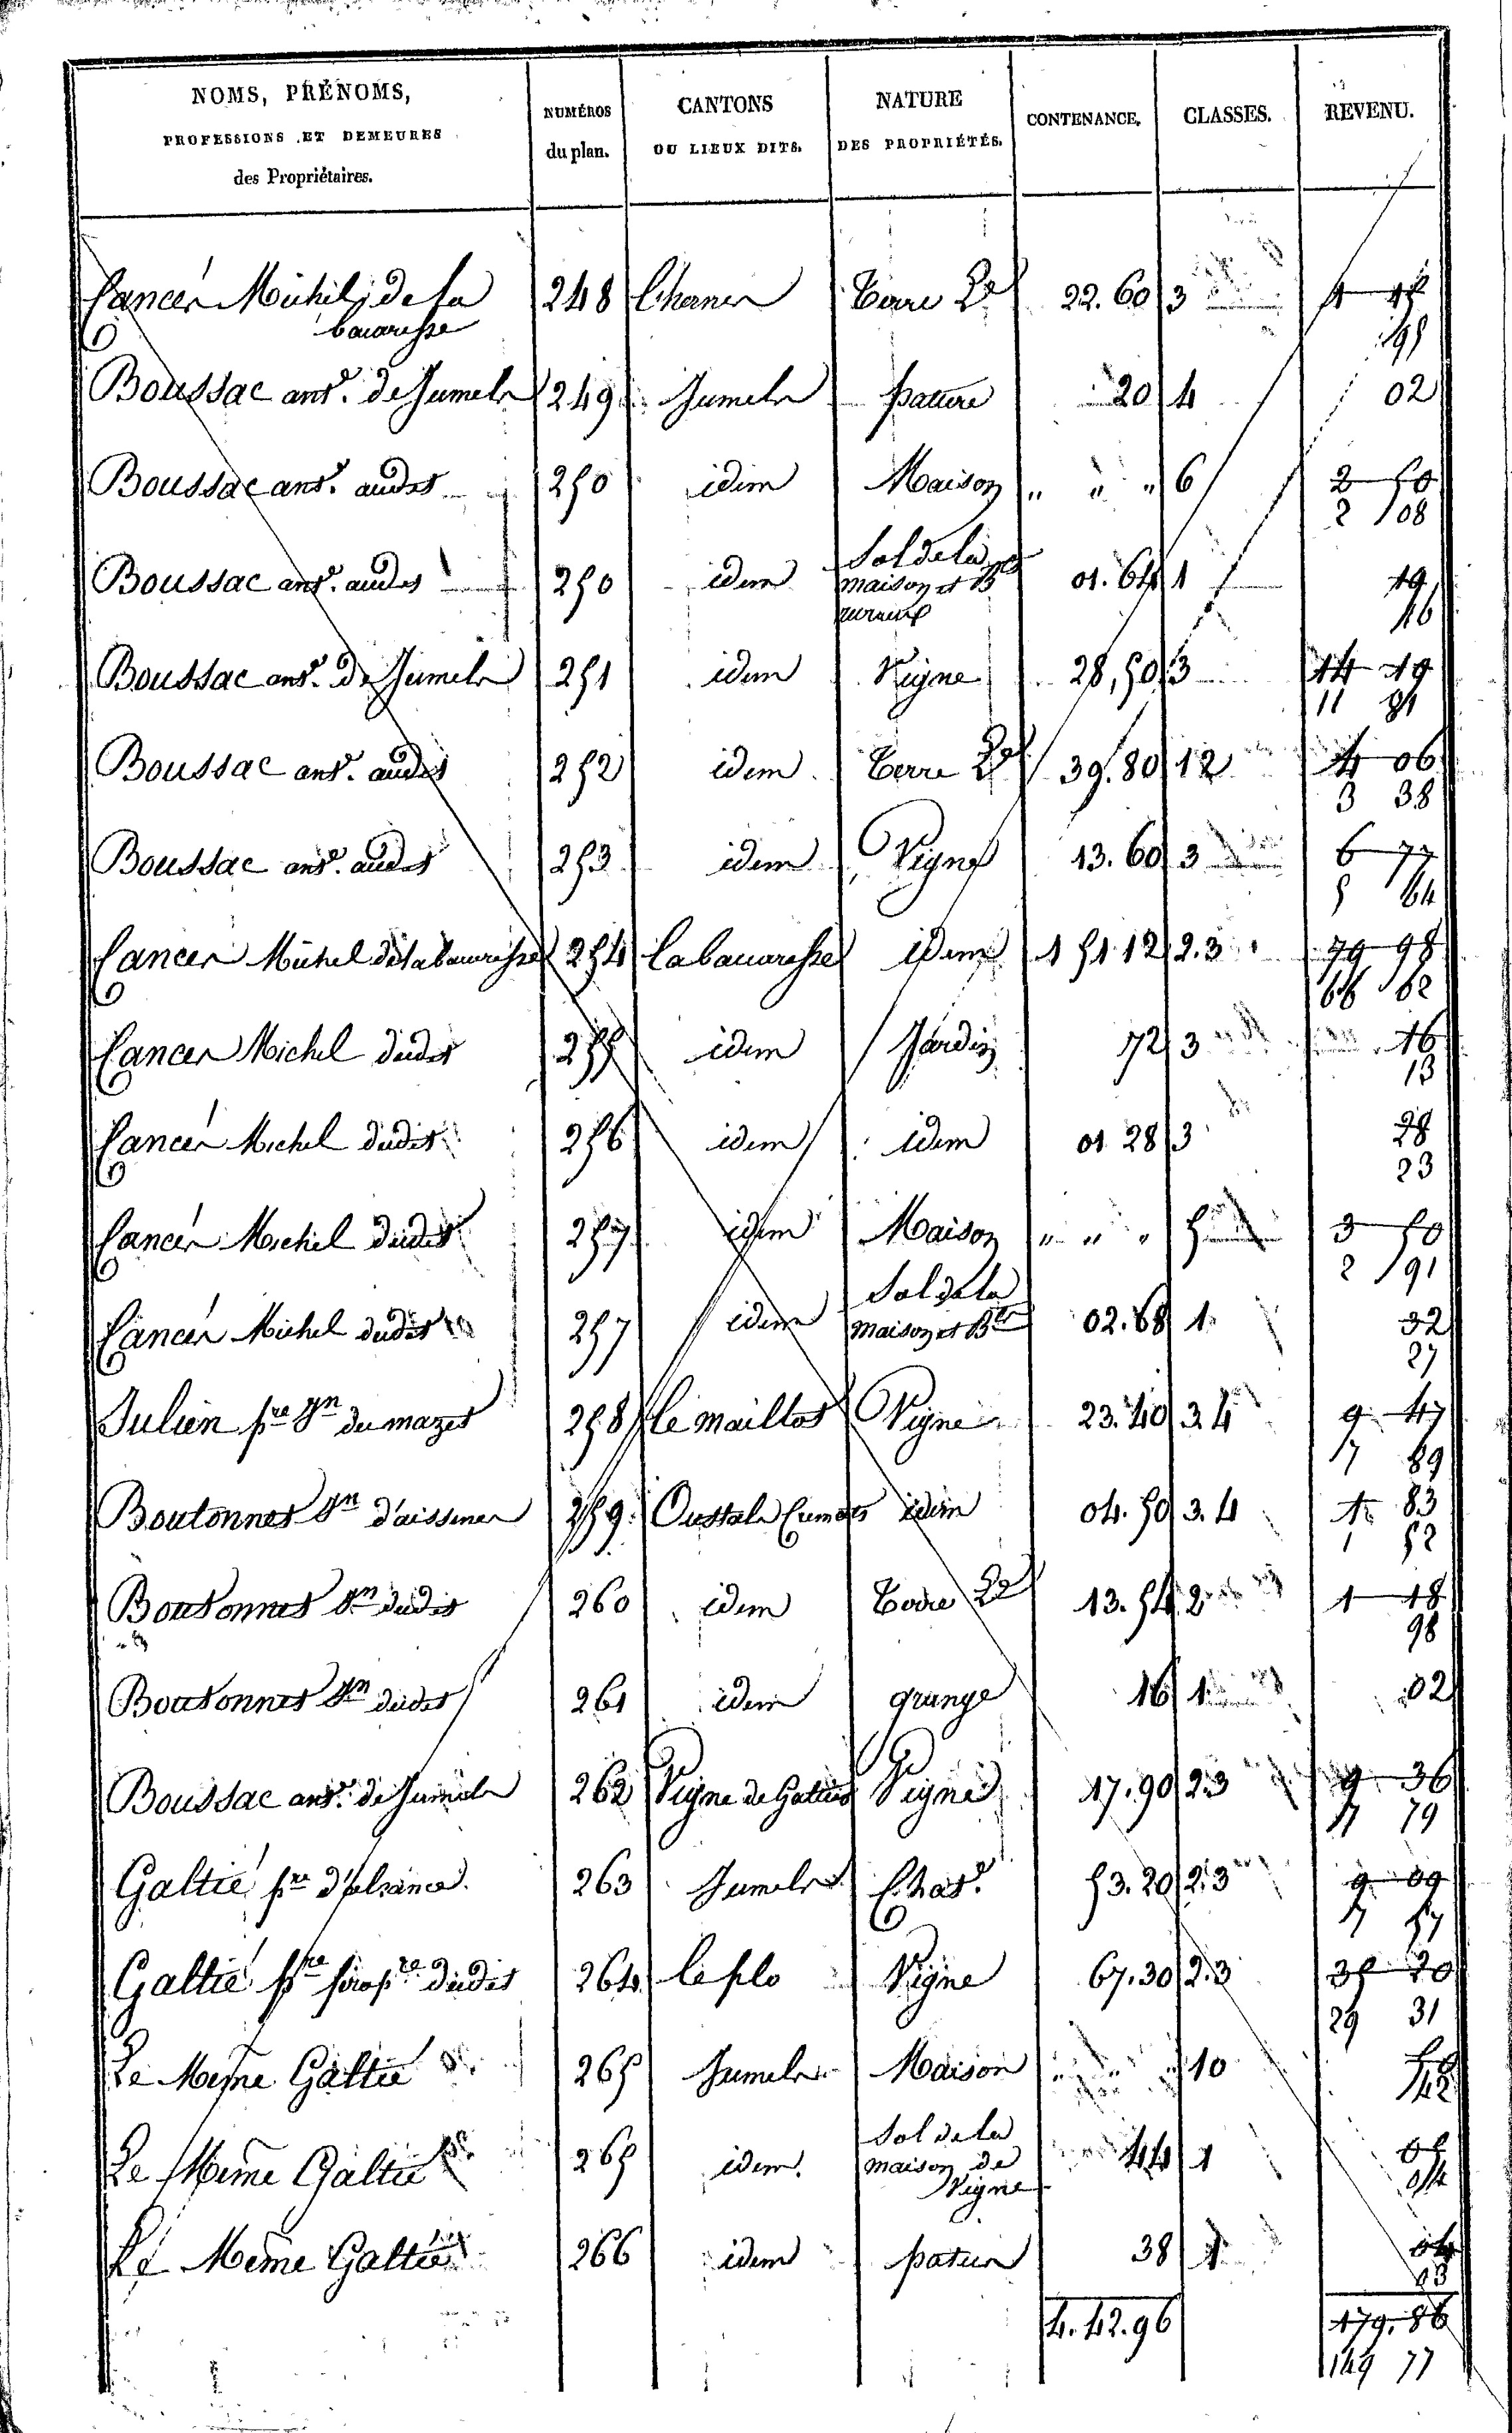 NOMS, PRÉNOMS,
PROFESSIONS ET DEMEURES
des Propriétaires.
NUMÉROS
du plan.
CANTONS
OU LIEUX DITS.
NATURE
DES PROPRIÉTÉS.
CONTENANCE.
CLASSES.
REVENU.
Cancer Michel, de la 248 Terre 22. 60 3
Boussac ant.e de Jumels 249 Jumels pature 20 4 02
Boussac ant.e audit 250 idem Maison " " " 6 2 50
2 08
Boussac ant.e audit 250 idem Sol de la maison et B 01. 64 1 19
16
Boussac ant.e de Jumels 251 idem Vigne 28, 50 3 14 19
11 81
Boussac ant.e audit 252 idem Terre 39. 80 12 4 06
3 38
Boussac ant.e audit 253 idem Vigne 13. 60 3 6 77
5 64
Cancer Michel de la bauaresse 254 labauaresse idem 1 51 12 2.3 79 98
66 62
Cancer Michel dudit 255 idem Jardin 72 3 16
13
Cancer Michel dudit 256 idem idem 01 28 3 28
23
Cancer Michel dudit 257 idem Maison " " " 5 3 50
2 91
Cancer Michel dudit 257 idem Sol de la maison et B 02. 68 1 32
27
Julien p.re du mazet 258 le maillot Vigne 23. 40 3. 4 9 47
7 89
Boutonnet 259 idem 04. 50 3. 4 1 83
1 52
Boutonnet dudit 260 idem Terre 13. 54 2 1 18
98
Boutonnet dudit 261 idem grange 16 1 02
Boussac ant.e de Jumels 262 Vigne de Vigne 17. 90 2 3 9 36
7 79
Galtié p.re 263 Jumels Chat. 53. 20 2. 3 9 09
7 57
Galtié p.re dudit 264 le plo Vigne 67. 30 2. 3 35 20
29 31
Le Meme Galtié 265 Jumels Maison 10
Le Meme Galtié 265 idem. Sol de la maison de Vigne 44 1 05
04
Le Meme Galtié 266 idem patur 38 1 04
03
4. 42. 96 179. 86
149 77